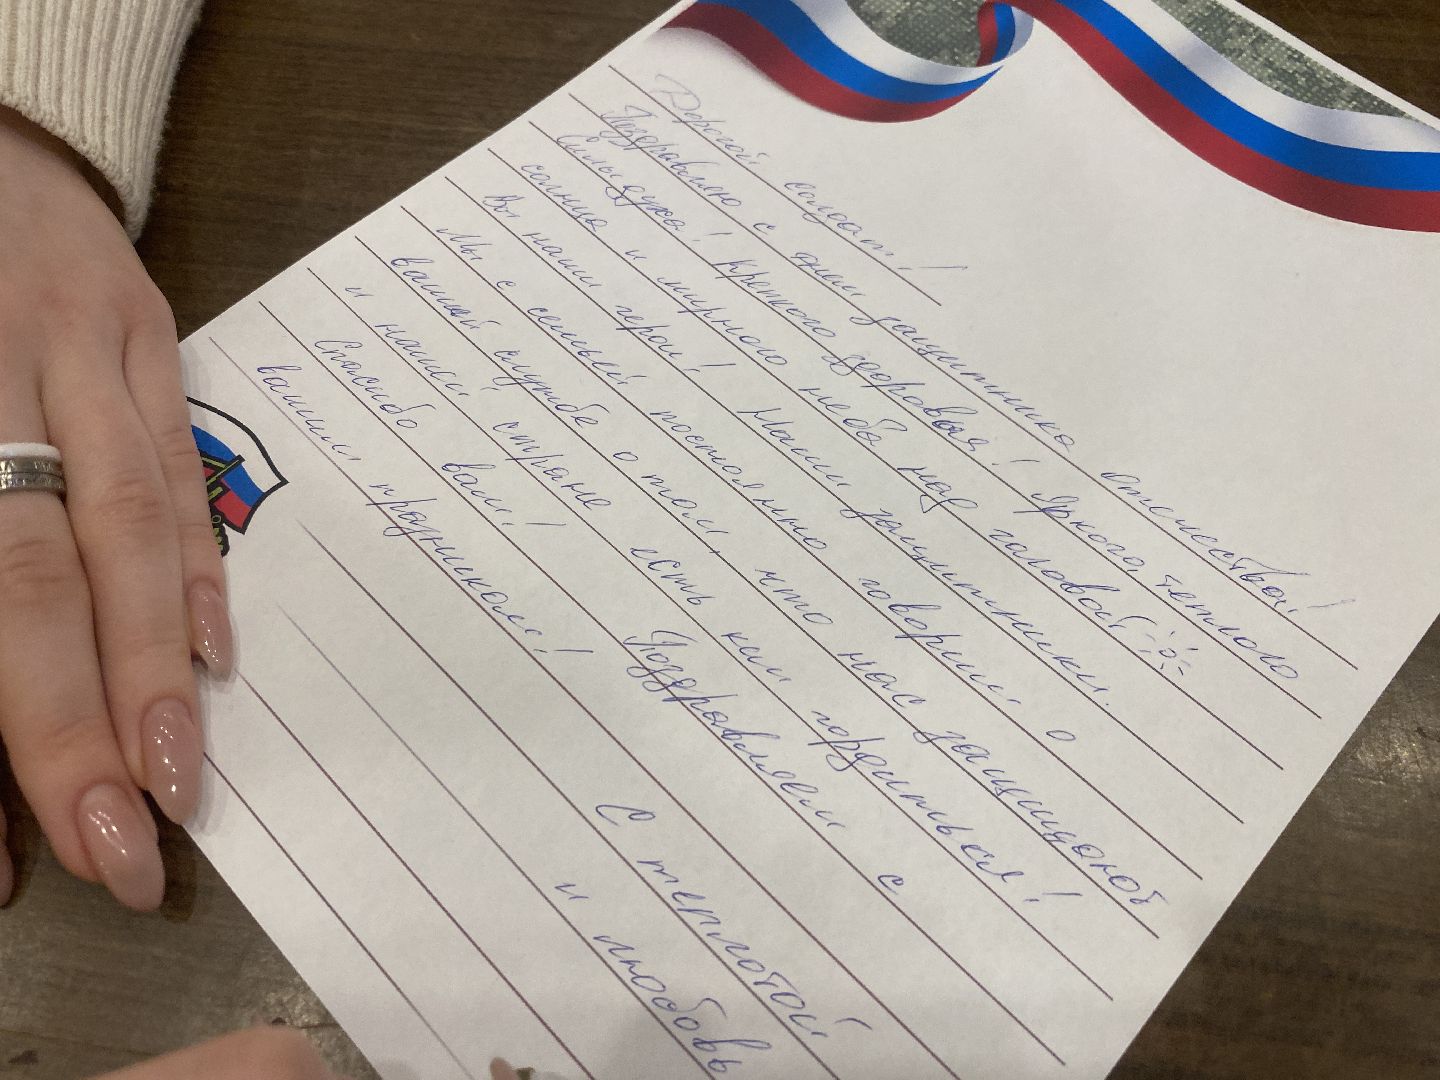 Дорогой солдат!
Поздравляю с днём защитника отечества!
Силы духа! Крепкого здоровья! Яркого, теплого
солнца и мирного неба над головой!
Вы наши герои! Наши защитники.
Мы с семьей постоянно говорим о
вашей службе о том, что нас защищают
и нашей стране есть кем гордиться!
Спасибо вам! Поздравляем с
вашим праздником!
С теплотой
и любовь